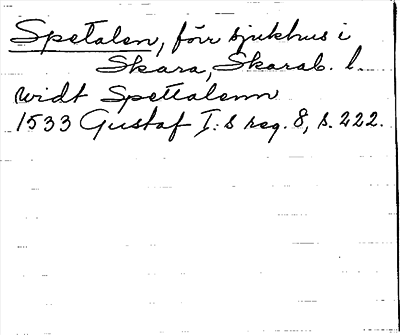 Spetalen, förr sjukhus i
Skara, Skarab. l.
widt Spettalenn
1533 Gustaf I:s reg. 8, s. 222.